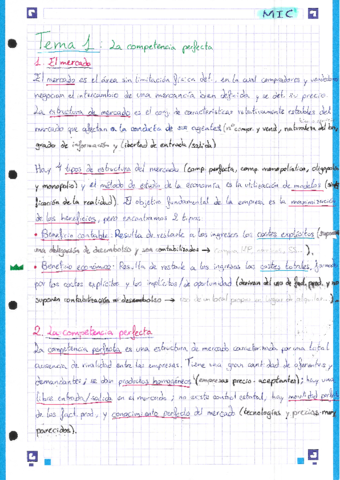 MIC
Tema 1: La competencia perfecta
1. El mercado
El mercado es el área sin limitación física def. en la cual compradores y vendedores
negocian el intercambio de una mercancía bien definida y se det. su precio.
La estructura de mercado es el conj. de características relativamente estables del
mercado que afectan a la conducta de sus agentes (nº comp. y vend, naturaleza del bien,
grado de información y libertad de entrada/salida)
Hay 4 tipos de estructura del mercado (comp. perfecta, comp. monopolística, oligopolio
y monopolio) y el método de estudio de la economía es la utilización de modelos (simpli-
ficación de la realidad). El objetivo fundamental de la empresa es la maximización
de los beneficios, pero encontramos 2 tipos:
• Beneficio contable: Resulta de restarle a los ingresos los costes explícitos (suponen
una obligación de desembolso y son contabilizados →
• Beneficio económico: Resulta de restarle a los ingresos los costes totales, formados
por los costes explícitos y los implícitos/de oportunidad (derivan del uso de fact. prod. y no
suponen contabilización ni desembolso →
2. La competencia perfecta
La competencia perfecta es una estructura de mercado caracterizada por una total
ausencia de rivalidad entre las empresas. Tiene una gran cantidad de oferentes y
demandantes; se dan productos homogéneos (empresas precio-aceptantes); hay una
libre entrada/salida en el mercado; no existe control estatal, hay movilidad perfecta
de los fact. prod. y conocimiento perfecto del mercado (tecnologías y precios muy
parecidos).